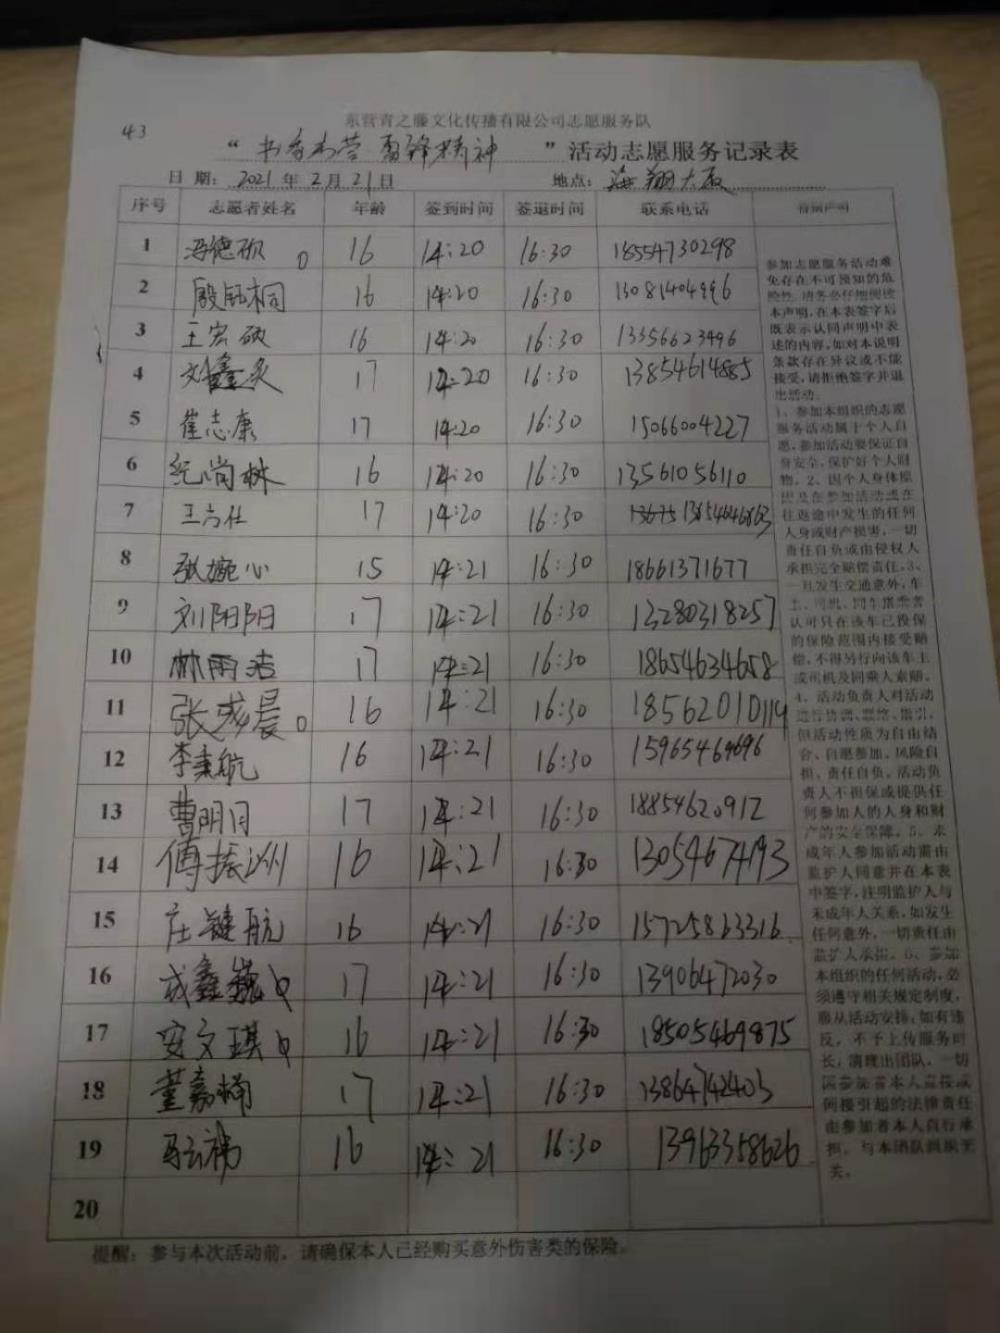 43
东营青之藤文化传播有限公司志愿服务队
“书香东营 雷锋精神”活动志愿服务记录表
日期：2021年2月21日 地点：海翔大厦
序号 志愿者姓名 年龄 签到时间 签退时间 联系电话 特别声明
1 冯德硕 16 14:20 16:30 18554730298
2 殷钰桐 16 14:20 16:30 13081404996
3 王宏硕 16 14:20 16:30 13356623496
4 刘鑫炎 17 14:20 16:30 13854614885
5 崔志康 17 14:20 16:30 15066004227
6 纪尚林 16 14:20 16:30 13561056110
7 17 14:20 16:30
8 张婉心 15 14:21 16:30 18661371677
9 刘阳阳 17 14:21 16:30 13280318257
10 林雨洁 17 14:21 16:30 18654634658
11 张彧晨 16 14:21 16:30 18562010114
12 李秉航 16 14:21 16:30 15965464696
13 曹明月 17 14:21 16:30 18854620912
14 傅振洲 16 14:21 16:30 13054674193
15 庄键航 16 14:21 16:30 15725863316
16 成鑫巍 17 14:21 16:30 13906472030
17 安文琪 16 14:21 16:30 18505469875
18 董嘉楠 17 14:21 16:30 13864742403
19 马云祎 16 14:21 16:30 13963358626
20
参加志愿服务活动难
免存在不可预知的危
险性,请务必仔细阅读
本声明,在本表签字后
既表示认同声明中表
述的内容,如对本说明
条款存在异议或不能
接受,请拒绝签字并退
出活动.
1、参加本组织的志愿
服务活动属于个人自
愿,参加活动要保证自
身安全,保护好个人财
物。2、因个人身体原
因及在参加活动或在
往返途中发生的任何
人身或财产损害,一切
责任自负或由侵权人
承担完全赔偿责任。3、
一旦发生交通意外,车
主、司机、同车搭乘者
认可只在该车已投保
的保险范围内接受赔
偿,不得另行向该车主
或司机及同乘人索赔。
4、活动负责人对活动
进行协调、联络、指引,
但活动性质为自由结
合、自愿参加、风险自
担、责任自负。活动负
责人不担保或提供任
何参加人的人身和财
产的安全保障。5、未
成年人参加活动需由
监护人同意并在本表
中签字,注明监护人与
未成年人关系,如发生
任何意外,一切责任由
监护人承担。6、参加
本组织的任何活动,必
须遵守相关规定制度,
服从活动安排;如有违
反,不予上传服务时
长,清理出团队。一切
因参加者本人直接或
间接引起的法律责任
由参加者本人自行承
担,与本团队组织无
关。
提醒：参与本次活动前，请确保本人已经购买意外伤害类的保险。